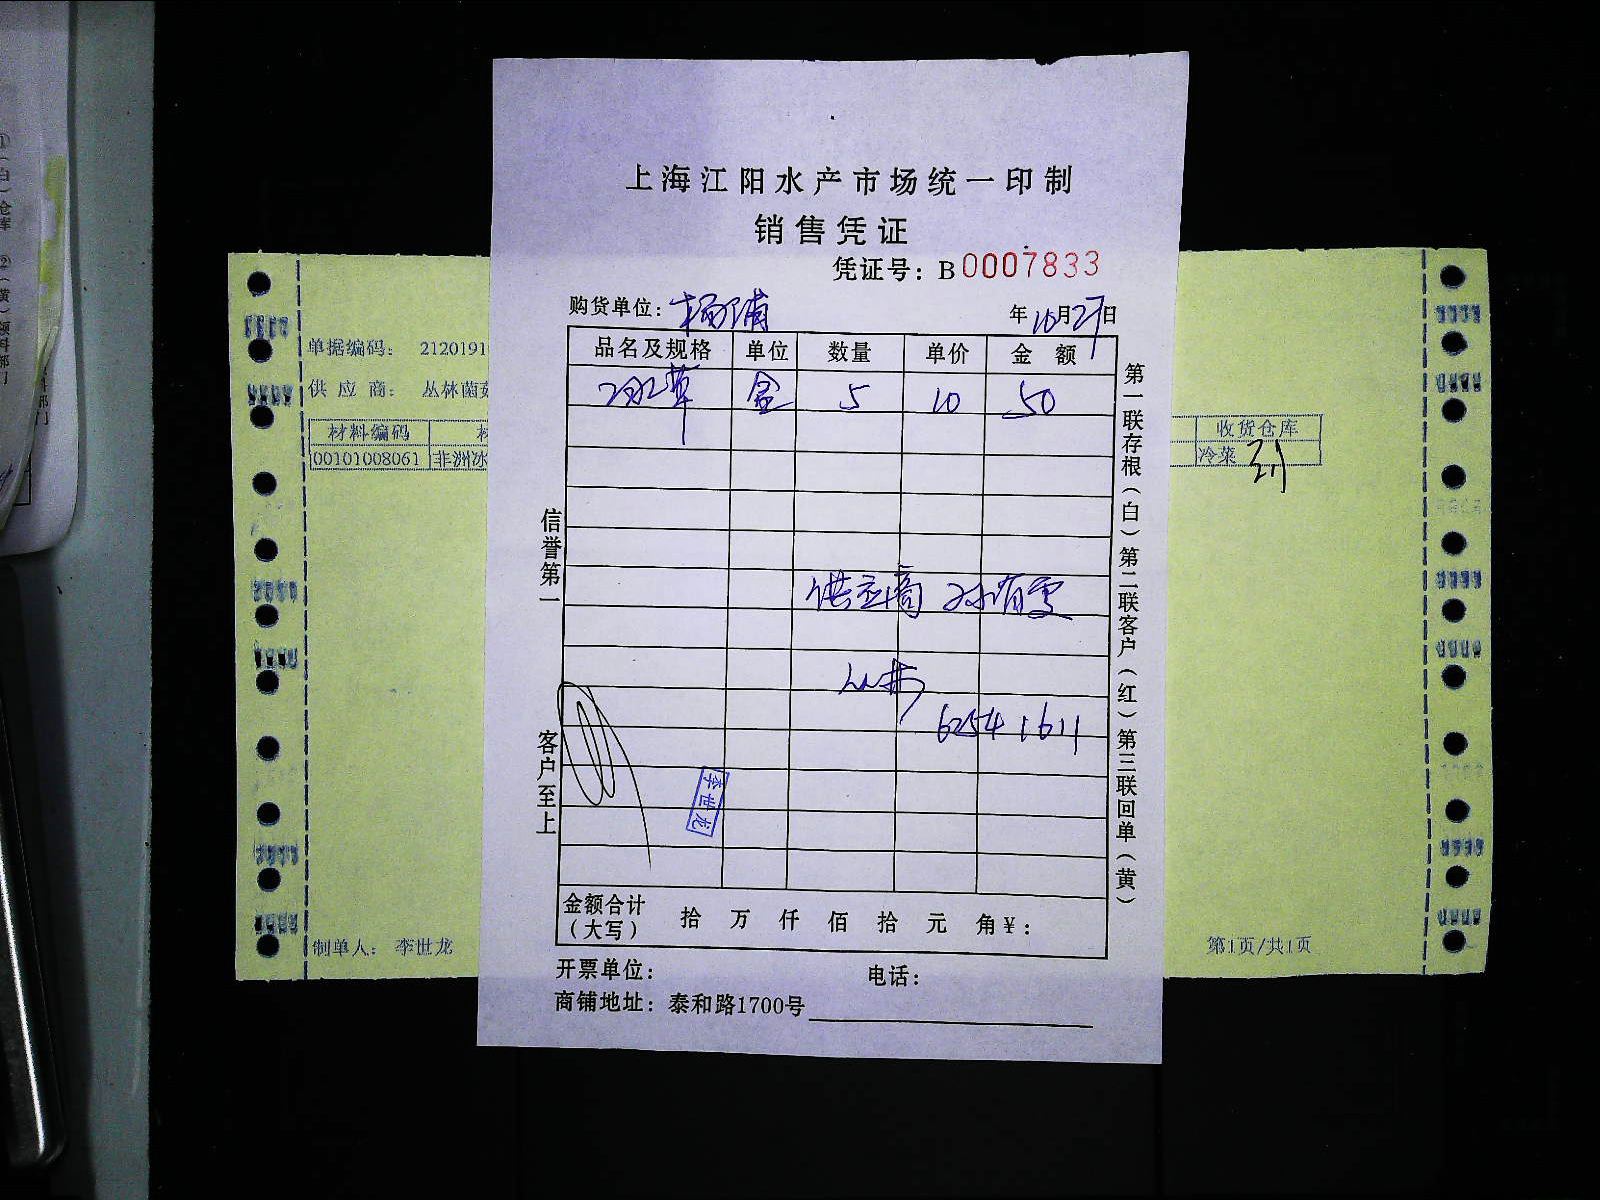 上海江阳水产市场统一印制
销售凭证
凭证号：B0007833
购货单位：杨浦
年10月27日
品名及规格 单位 数量 单价 金额
冰草 盒 5 10 50
供应商 孙有雯
丛林
6254 1611
李世龙
金额合计（大写） 拾 万 仟 佰 拾 元 角 ¥：
开票单位： 电话：
商铺地址：泰和路1700号
信誉第一
客户至上
第一联存根（白）第二联客户（红）第三联回单（黄）
单据编码： 2120191
供应商： 丛林菌菇
材料编码
00101008061 非洲冰
收货仓库
冷菜
制单人： 李世龙
第1页/共1页